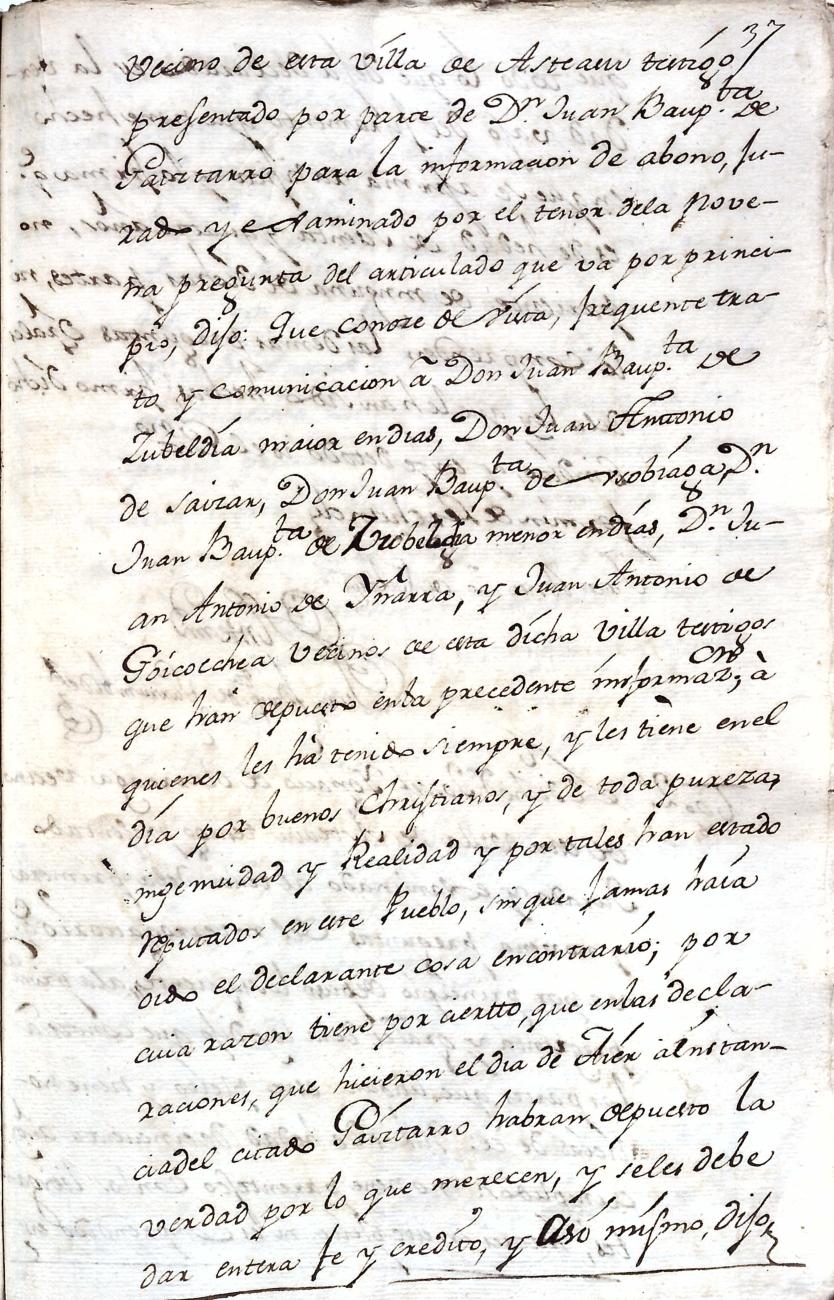 37
vecino de esta villa de Asteasu testigo
presentado por parte de Dn. Juan Baup.ta de
Gaiztarro para la informacion de abono, Ju-
rado y examinado por el tenor dela Nove-
na pregunta del articulado que va por princi-
pio, dijo: Que conoze de vista, frequente tra-
to y comunicacion à Don Juan Baup.ta de
Zubeldía maior endias, Don Juan Antonio
de saizar, Don Juan Baup.ta de Usobiaga, Dn.
Juan Baup.ta de Zubeldia menor endías, Dn. Ju-
an Antonio de Ynarra, y Juan Antonio de
Goicoechea vecinos de esta dicha villa testigos
que hàn depuesto enla precedente informaz.on, à
quienes les hà tenido siempre, y les tiene en el
día por buenos Christianos, y de toda pureza,
ingenuidad y Realidad y por tales han estado
reputados en este Pueblo, sin que Jamas haia
oido el declarante cosa encontrario; por
cuia razon tiene por ciertto, que enlas decla-
raciones, que hicieron el dia de Aier àlnstan-
ciadel citado Gaiztarro habran depuesto la
verdad por lo que merecen, y seles debe
dar entera fe y credito, y asi mismo, dijo,